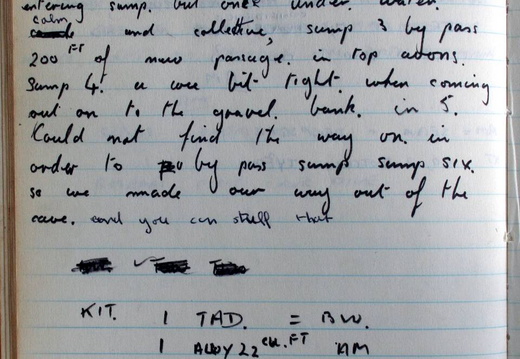 entering sump. but once under water.
calm and collective, sump 3 by pass
200 FT of new passage. in top avons.
Sump 4. a wee bit tight. when coming
out on to the gravel. bank. in 5.
Could not find the way on. in
order to by pass sump sump six.
so we made our way out of the
cave. and you can stuff that
KIT. 1 TAD. = BW.
1 ALLOY 22 CU. FT AM